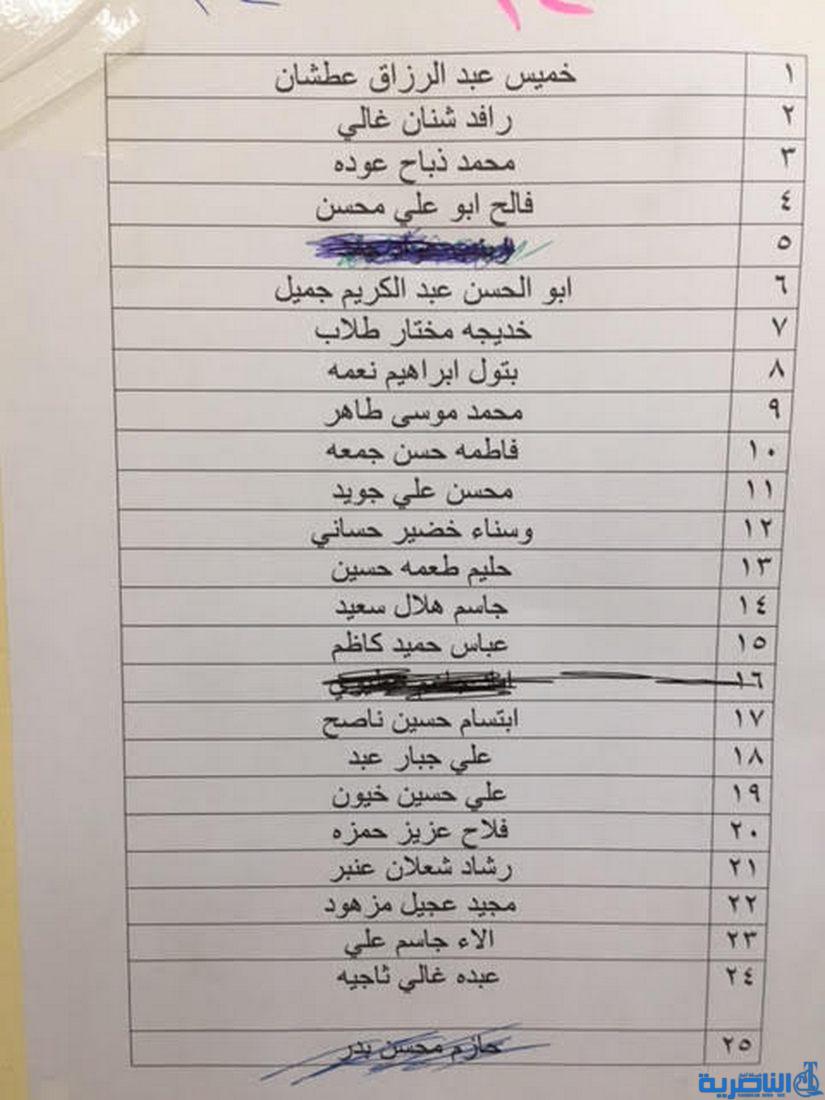 ١ خميس عبد الرزاق عطشان
٢ رافد شنان غالي
٣ محمد ذباح عوده
٤ فالح ابو علي محسن
٥
٦ ابو الحسن عبد الكريم جميل
٧ خديجه مختار طلاب
٨ بتول ابراهيم نعمه
٩ محمد موسى طاهر
١٠ فاطمه حسن جمعه
١١ محسن علي جويد
١٢ وسناء خضير حساني
١٣ حليم طعمه حسين
١٤ جاسم هلال سعيد
١٥ عباس حميد كاظم
١٦
١٧ ابتسام حسين ناصح
١٨ علي جبار عبد
١٩ علي حسين خيون
٢٠ فلاح عزيز حمزه
٢١ رشاد شعلان عنبر
٢٢ مجيد عجيل مزهود
٢٣ الاء جاسم علي
٢٤ عبده غالي ثاجيه
٢٥ حازم محسن بدر
الناصرية